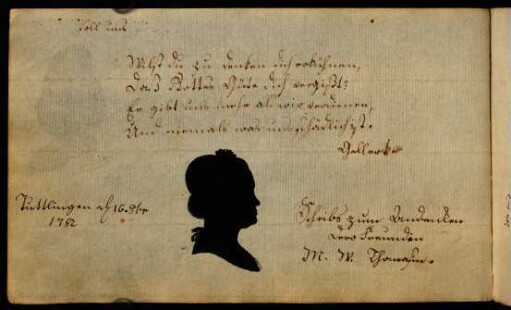 soll uns
Willst du zu denken dich erkühnen,
Daß Gottes Güte dich vergißt?
Er gibt uns mehr als wir verdienen,
Und niemals was uns schädlich ist.
Gellert
Tuttlingen d. 16. 8br
1782
Schribs zum Andenken
Dero Freundin
M. W. Thomasin.